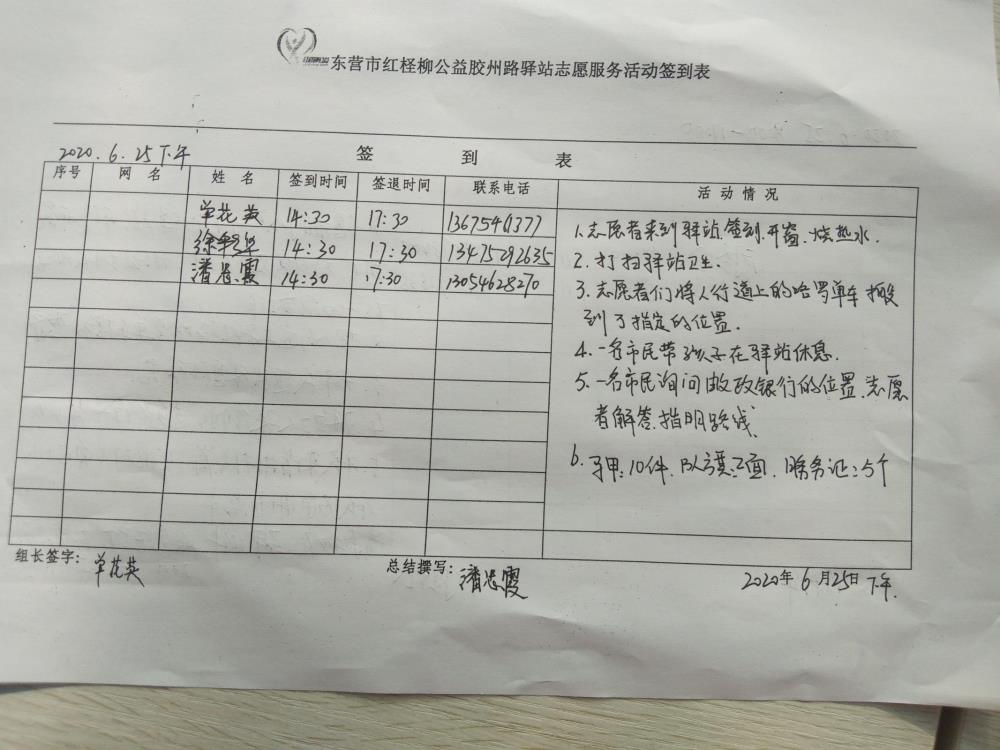 东营市红柽柳公益胶州路驿站志愿服务活动签到表
2020.6.25下午
签到表
序号 网名 姓名 签到时间 签退时间 联系电话 活动情况
单花英 14:30 17:30
徐 14:30 17:30 13475292635
潘忠霞 14:30 17:30 13054628270
1.志愿者来到驿站.签到.开窗.烧热水.
2.打扫驿站卫生.
3.志愿者们将人行道上的哈罗单车搬
到了指定的位置.
4.一名市民带孩子在驿站休息.
5.一名市民询问邮政银行的位置.志愿
者解答.指明路线.
6.马甲:10件.队旗:2面.服务证:5个
组长签字:单花英
总结撰写:潘忠霞
2020年6月25日下午.